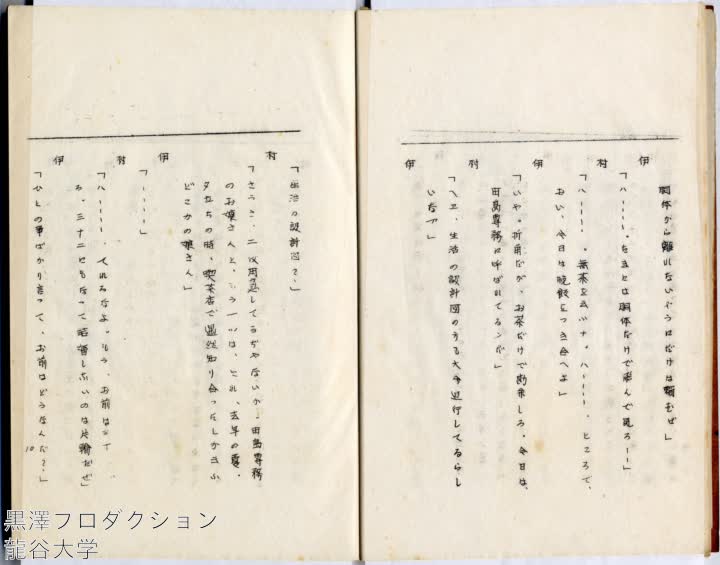 胴体から離れないやうにだけは頼むぜ」
伊
「ハ・・・・、なまとは胴体だけで飛んで見ろ――」
村
「ハ・・・・、無茶を云ふナ。ハ・・・・、ところで、
おい、今日は晩飯をつき合へよ」
伊
「いや、折角だが、お茶だけで勘弁しろ、今日は、
田島専務に呼ばれてるンだ」
村
「ヘエ、生活の設計図のうち大分進行してるらし
いなア」
伊
「生活の設計図？」
村
「さうさ、二次用意してるぢやないか。田島専務
のお嬢さんと、もう一つは、それ、去年の夏、
夕立ちの時、喫茶店で偶然知り合つたとか云ふ
どこかの娘さん」
伊
「・・・・」
村
「ハ・・・・、てれるなよ。もう、お前は
ろ、三十二にもなつて結婚しないのは片輪だぜ」
伊
「ひとの事ばかり言つて、お前はどうなんだ？」
10
黒澤プロダクション
龍谷大学